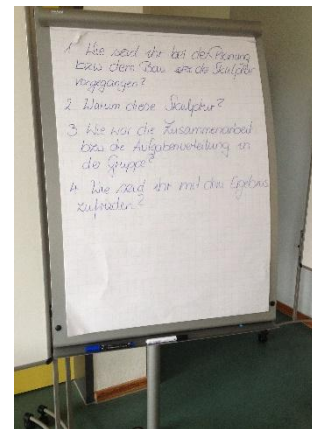 1 Wie seid ihr bei der Planung
bzw dem Bau der Skulptur
vorgegangen?
2. Warum diese Skulptur?
3 Wie war die Zusammenarbeit
bzw die Aufgabenverteilung in
der Gruppe?
4. Wie seid ihr mit dem Ergebnis
zufrieden?